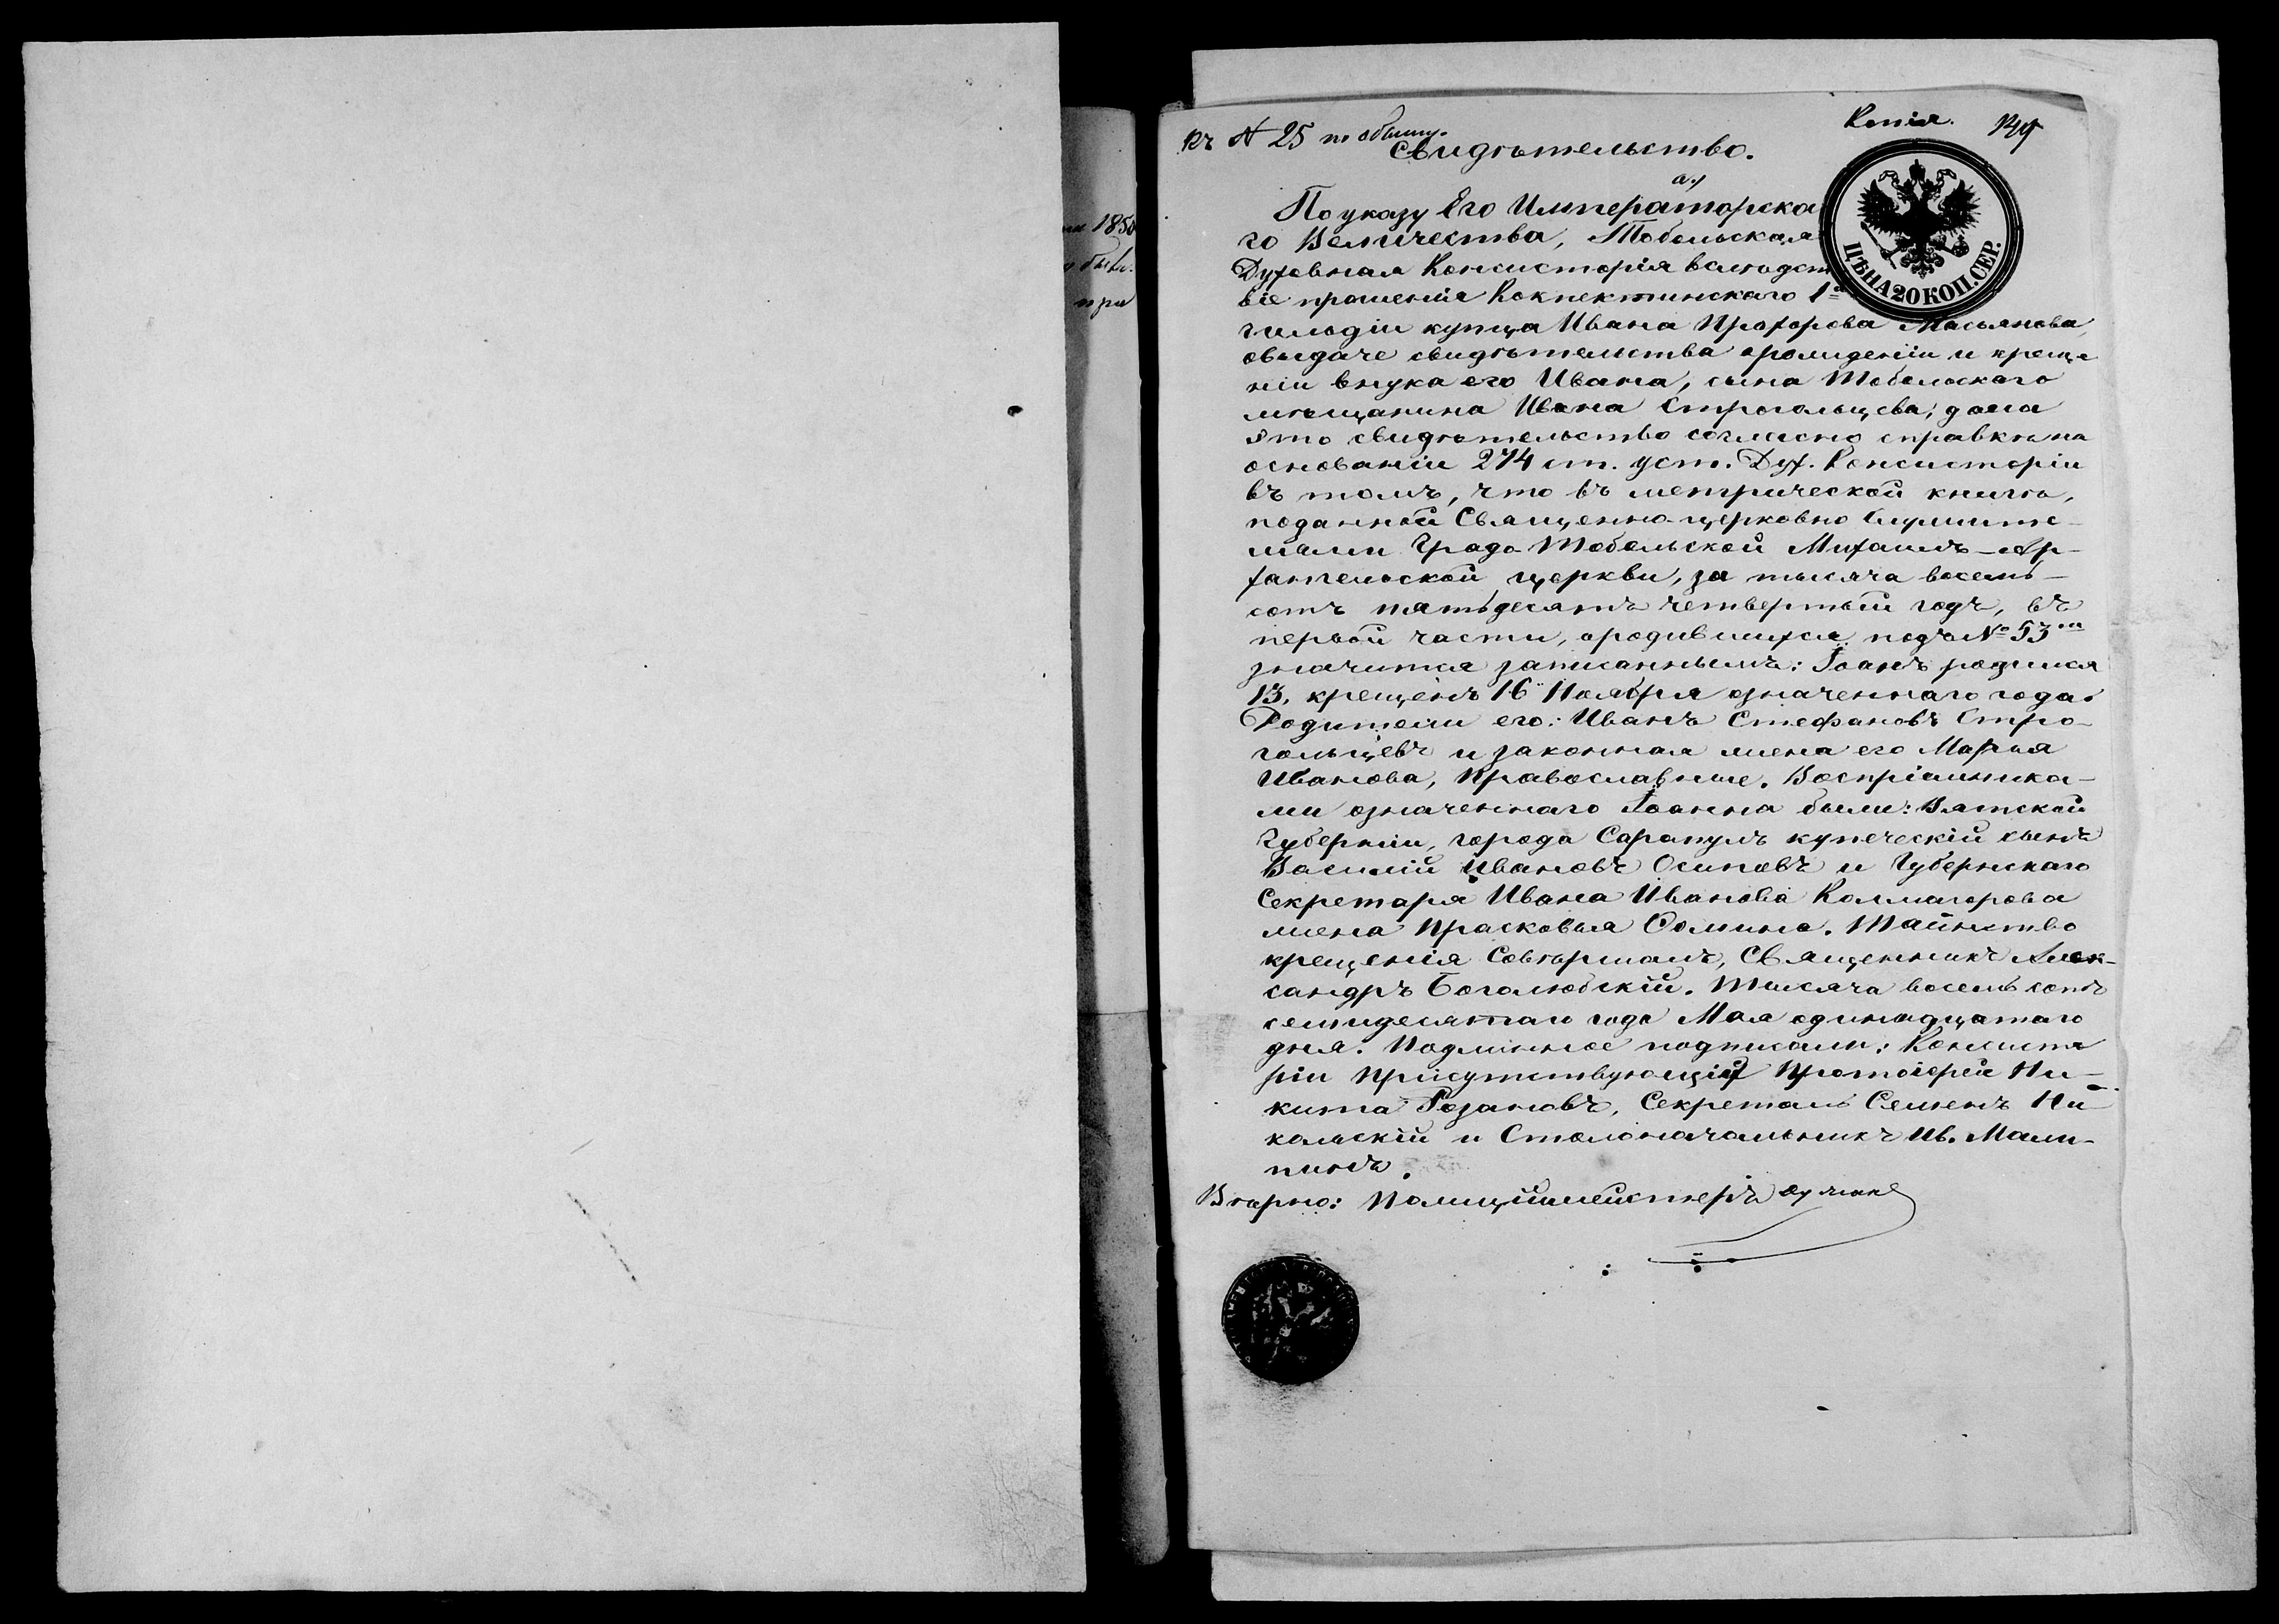 на 1850
при
Къ № 25 по общему.
Копія.
Свидѣтельство.
По указу Его Императорска
го Величества, Тобольская
ЦѢНА 20 КОП. СЕР.
Духовная Консисторія вслѣдст
віе прошенія Кокпектинскаго 1й
гильдіи купца Ивана Прохорова Масьянова,
овыдаче свидѣтельства орожденіи и креще
ніи внука его Ивана, сына Тобольскаго
мѣщанина Ивана Строгольщева, дала
это свидѣтельство согласно справки на
основаніи 274 ст. уст. Дух. Консисторіи
въ томъ, что въ метрической книгѣ,
поданной Священно-церковно служите-
лями Града Тобольской Михаилъ-Ар-
хангельской церкви, за тысяча восемь-
сотъ пятьдесятъ четвертый годъ, въ
первой части, ородившихся подъ № 53м
значится записаннымъ: Іоанъ родился
13, крещенъ 16 Ноября означеннаго года.
Родители его: Иванъ Стефановъ Стро-
гольщевъ и законная жена его Марья
Иванова, Православные. Воспріемника-
ми означеннаго Іоанна были: Вятской
Губерніи, города Сарапулъ купеческій сынъ
Василій Ивановъ Осиповъ и Губернскаго
Секретаря Ивана Иванова Колмагорова
жена Прасковья Фомина. Таинство
крещенія Совершалъ, Священникъ Алек-
сандръ Боголюбскій. Тысяча восемь сотъ
семидесятаго года Мая одинадцатаго
дня. Подлинное подписали: Консисто
ріи Присутствующій Протоіерей Ни-
кита Розановъ, Секретарь Семенъ Ни-
кольскій и Столоначальникъ Ив. Мали-
нинъ.
Вѣрно: Полицiймейстеръ